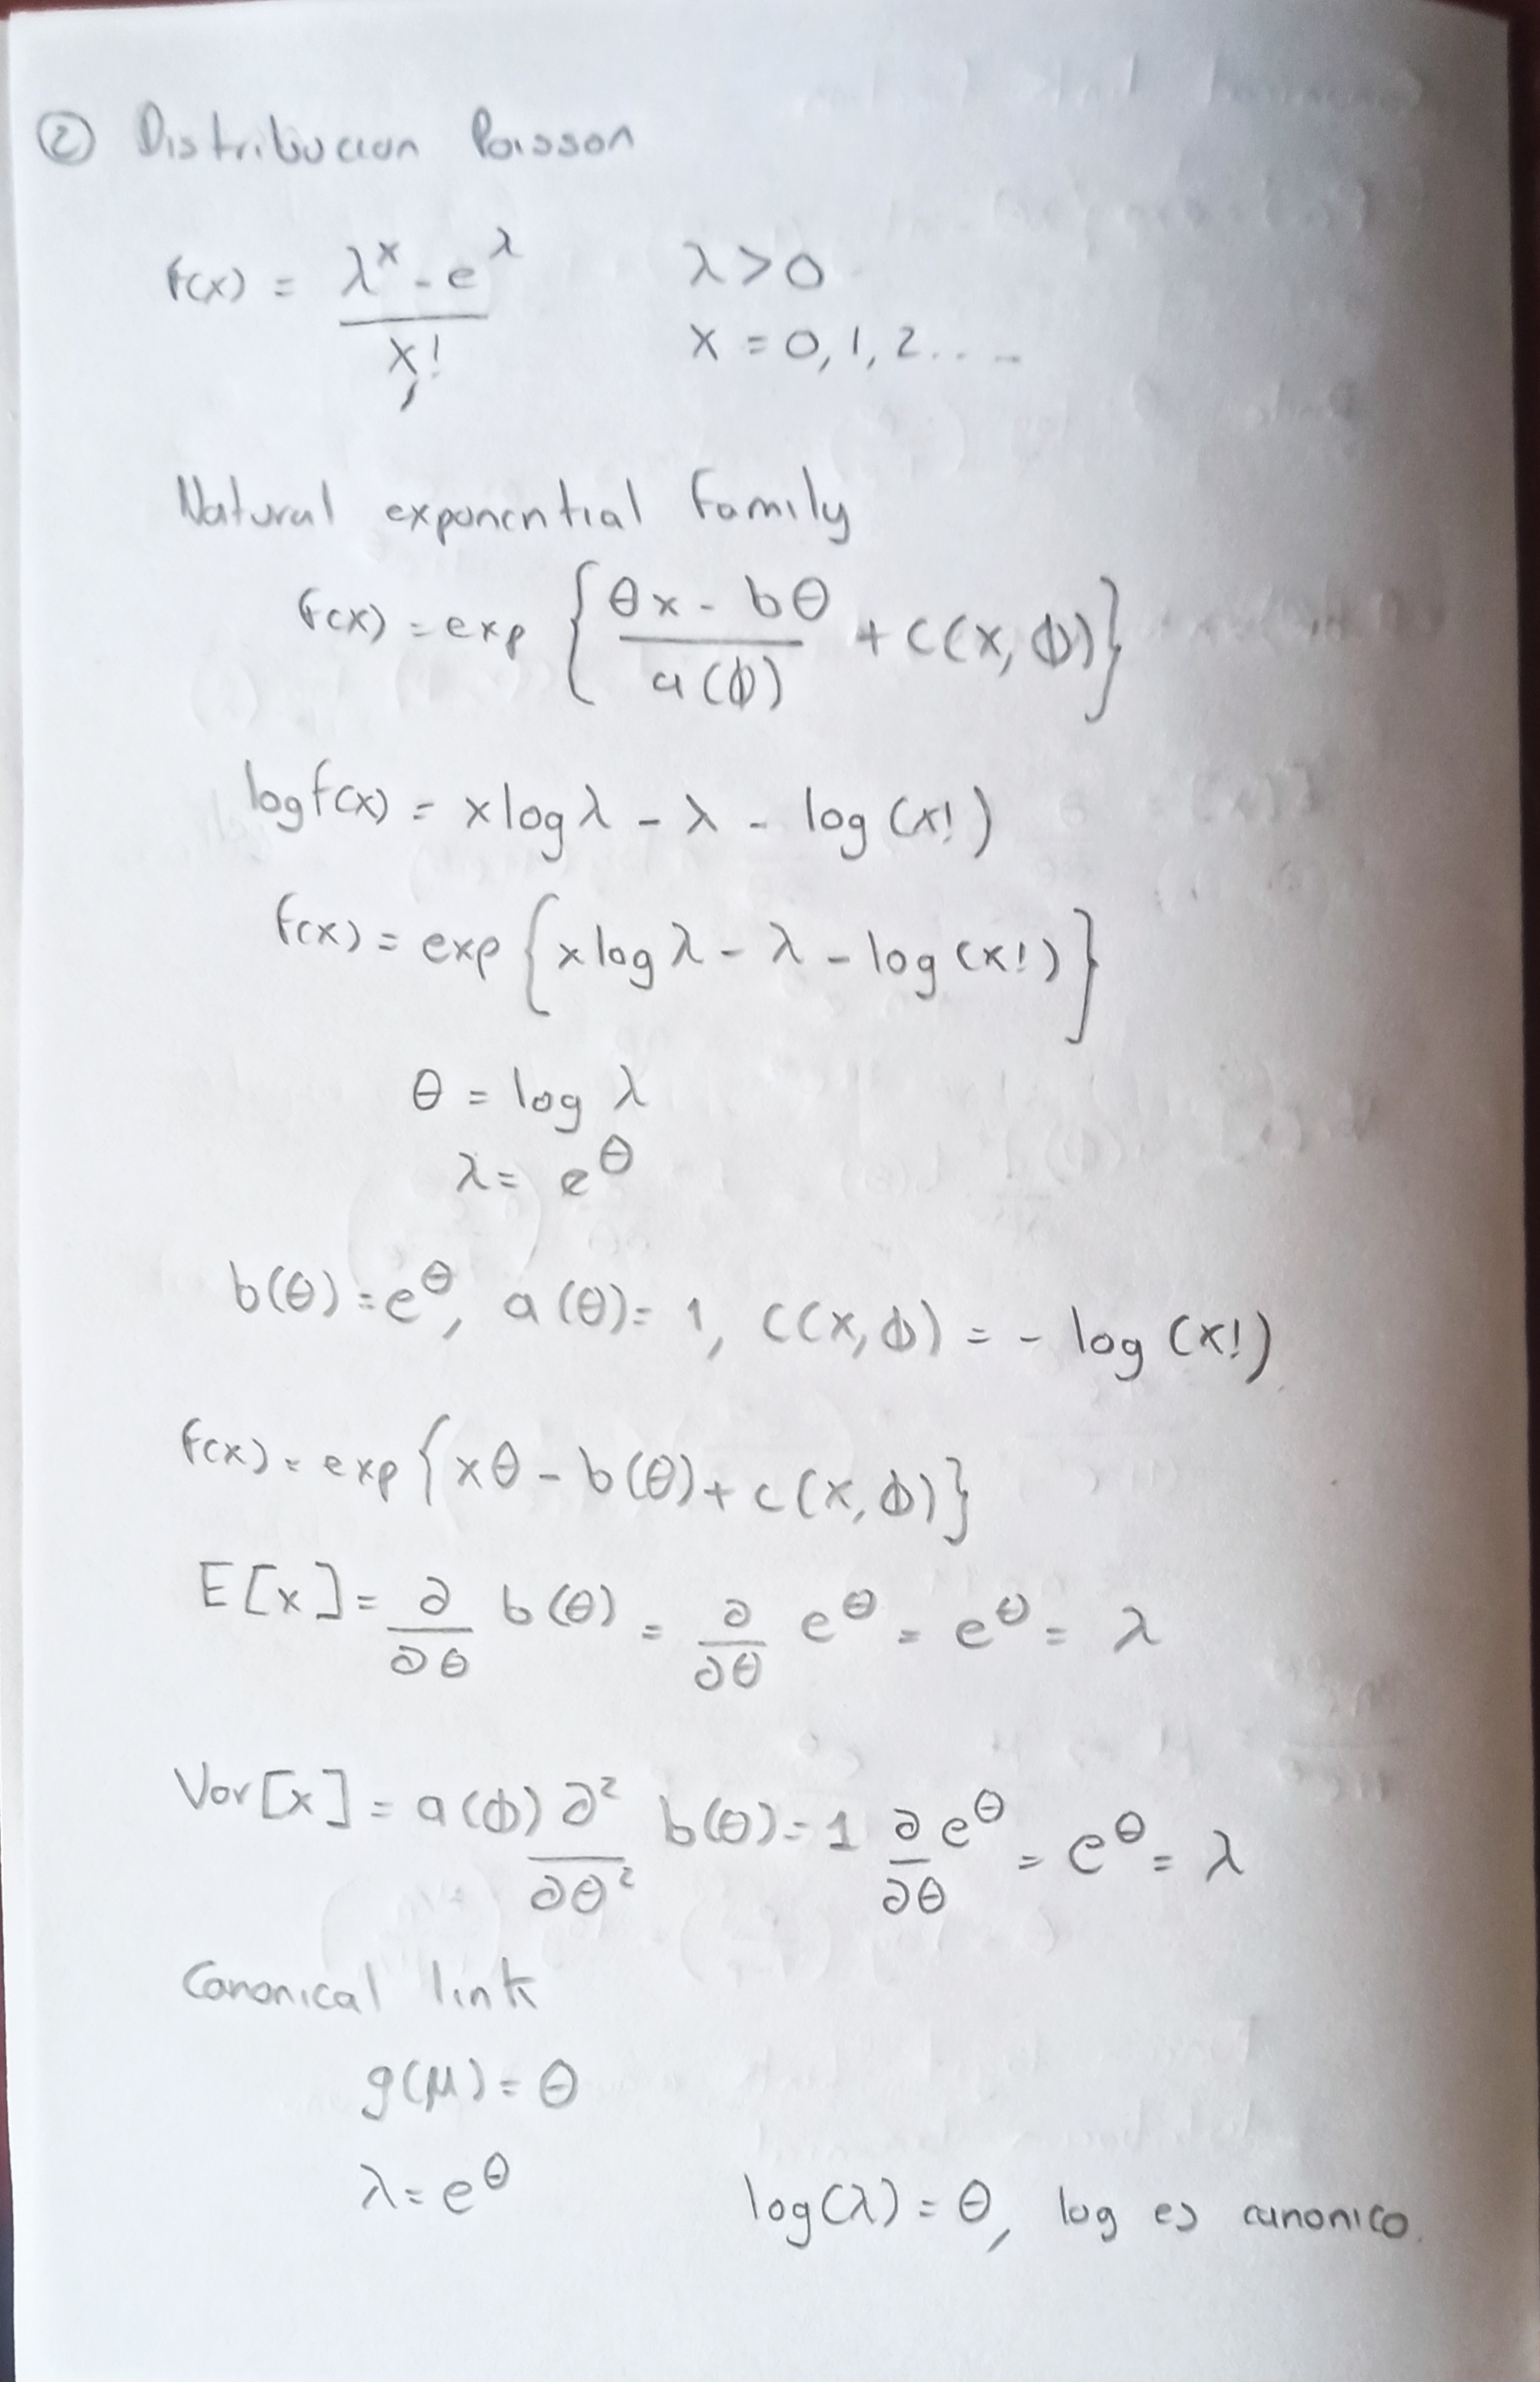 ② Distribucion Poisson
f(x) = λ^x - e^λ / x!    λ>0
x = 0, 1, 2....
Natural exponential family
f(x) = exp { (θx - bθ) / a(ϕ) + c(x, ϕ) }
log f(x) = x log λ - λ - log (x!)
f(x) = exp { x log λ - λ - log (x!) }
θ = log λ
λ = e^θ
b(θ) = e^θ, a(θ) = 1, c(x, ϕ) = - log (x!)
f(x) = exp { xθ - b(θ) + c(x, ϕ) }
E[x] = ∂/∂θ b(θ) = ∂/∂θ e^θ = e^θ = λ
Var[x] = a(ϕ) ∂²/∂θ² b(θ) = 1 ∂/∂θ e^θ = e^θ = λ
Canonical link
g(μ) = θ
λ = e^θ    log(λ) = θ, log es canonico.